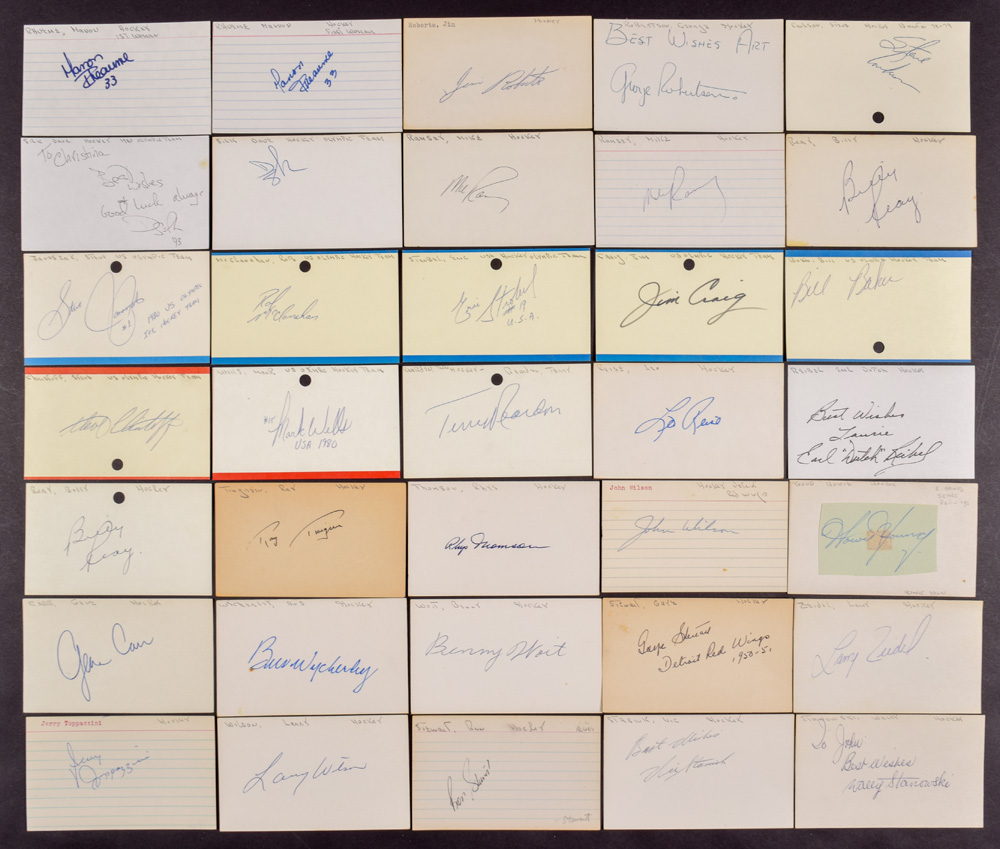 Rheaume, Manon Hockey
1st Woman
Manon
Rheaume
33
Rheaume, Manon Hockey
First Woman
Manon
Rheaume
33
Roberts, Jim Hockey
Jim Roberts
Robertson, George Hockey
Best Wishes Art
George Robertson
Silk, Dave Hockey 1980 Olympic Team
To Christina
Best
Wishes
Good luck always
93
Silk, Dave Hockey Olympic Team
Ramsay, Mike Hockey
Ramsay, Mike Hockey
Reay, Billy Hockey
Billy
Reay
Janaszak, Steve US Olympic Team
Steve Janaszak
#1 1980 US Olympic
Ice Hockey Team
McClanahan Rob US Olympic Hockey Team
Rob
McClanahan
Strobel, Eric USA Hockey Olympic Team
Eric Strobel
#19
U.S.A.
Craig Jim US Olympic Hockey Team
Jim Craig
Baker, Bill US Olympic Hockey Team
Bill Baker
Christoff, Steve US Olympic Hockey Team
Steve Christoff
Wells, Mark US Olympic Hockey Team
Mark Wells
USA 1980
Terry Reardon
Reise, Leo Hockey
Leo Reise
Reibel Earl Dutch Hockey
Best Wishes
Laurie
Earl "Dutch" Reibel
Reay, Billy Hockey
Billy
Reay
Timgren, Ray Hockey
Ray Timgren
Thomson, Rhys Hockey
Rhys Thomson
John Wilson Hockey Detroit
Red Wings
John Wilson
Howie Young
Carr Gene Hockey
Gene Carr
Wycherley, Bus Hockey
Bus Wycherley
Woit, Benny Hockey
Benny Woit
Stewart, Gaye Hockey
Gaye Stewart
Detroit Red Wings
1950-51
Zeidel, Larry Hockey
Larry Zeidel
Jerry Toppazzini Hockey
Jerry
Toppazzini
Wilson, Larry Hockey
Larry Wilson
Stewart, Ron Hockey
Ron Stewart
Stewart
Stasiuk, Vic Hockey
Best Wishes
Vic Stasiuk
Stanowski, Wally Hockey
To John
Best Wishes
Wally Stanowski